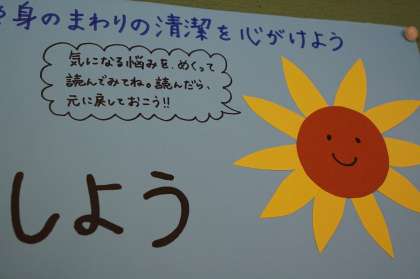 身のまわりの清潔を心がけよう
気になる悩みを、めくって
読んでみてね。読んだら、
元に戻しておこう!!
しよう